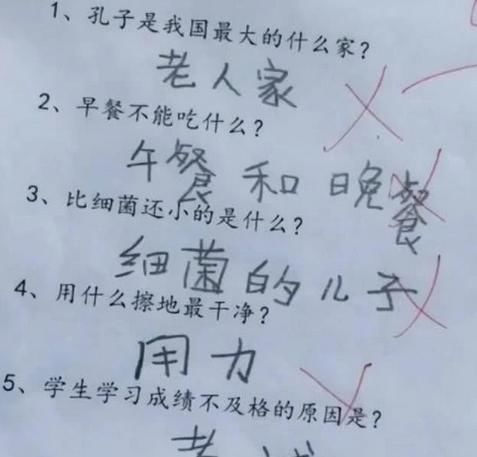 1、孔子是我国最大的什么家？
老人家
2、早餐不能吃什么？
午餐和晚餐
3、比细菌还小的是什么？
细菌的儿子
4、用什么擦地最干净？
用力
5、学生学习成绩不及格的原因是？